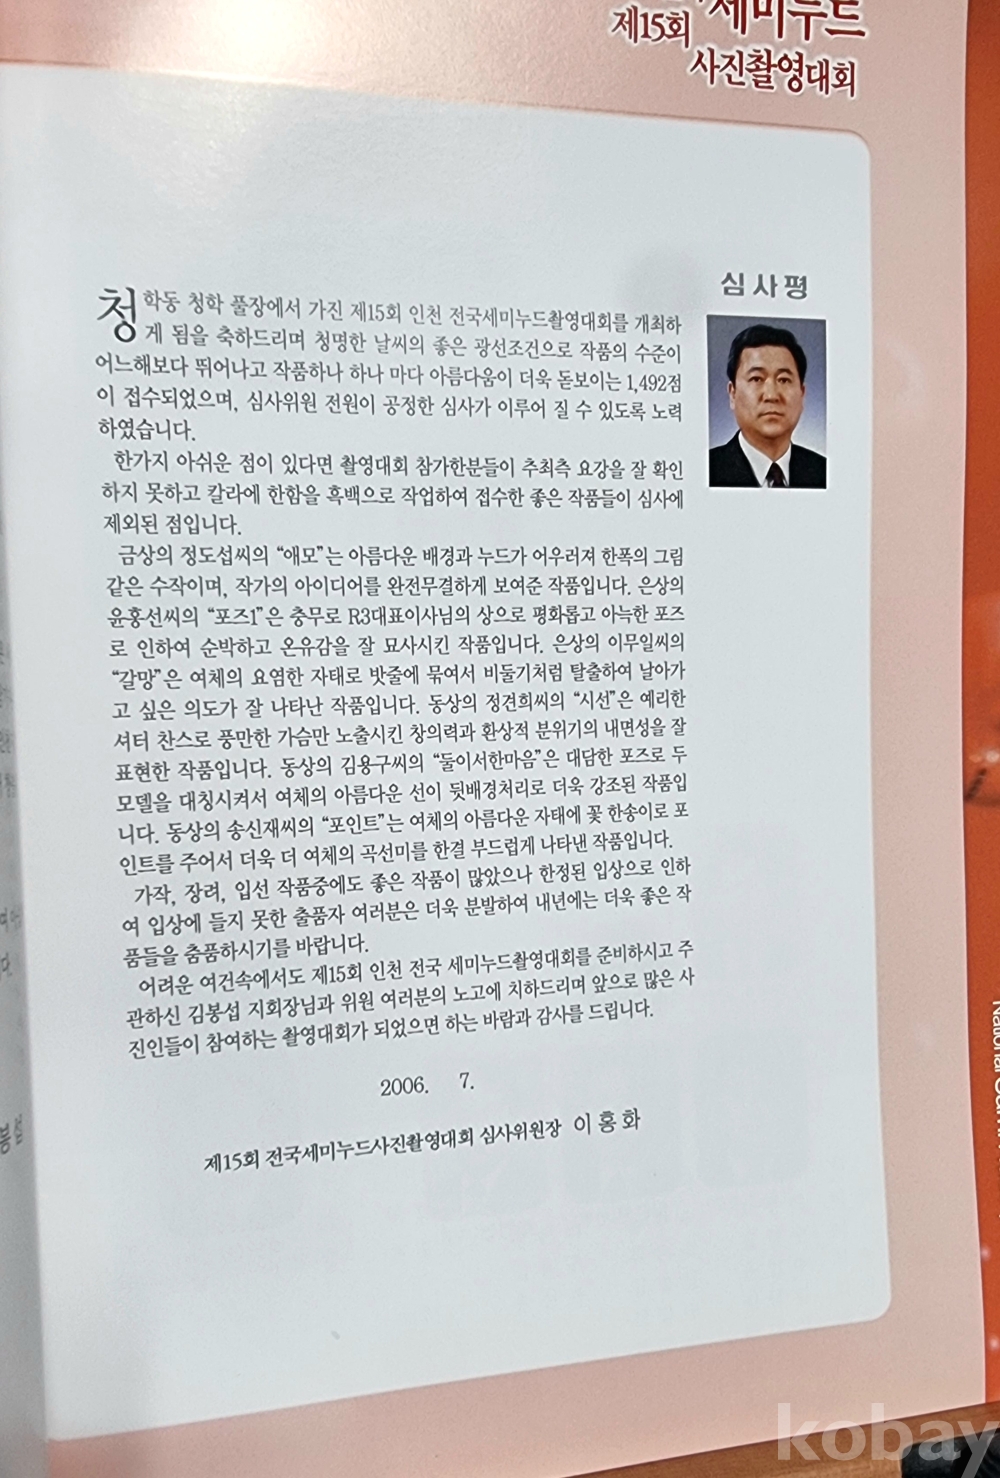 세미누드
제15회
사진촬영대회
심사평
청학동 청학 풀장에서 가진 제15회 인천 전국세미누드촬영대회를 개최하
게 됨을 축하드리며 청명한 날씨의 좋은 광선조건으로 작품의 수준이
어느해보다 뛰어나고 작품하나 하나 마다 아름다움이 더욱 돋보이는 1,492점
이 접수되었으며, 심사위원 전원이 공정한 심사가 이루어 질 수 있도록 노력
하였습니다.
한가지 아쉬운 점이 있다면 촬영대회 참가한분들이 추최측 요강을 잘 확인
하지 못하고 칼라에 한함을 흑백으로 작업하여 접수한 좋은 작품들이 심사에
제외된 점입니다.
금상의 정도섭씨의 “애모”는 아름다운 배경과 누드가 어우러져 한폭의 그림
같은 수작이며, 작가의 아이디어를 완전무결하게 보여준 작품입니다. 은상의
윤홍선씨의 “포즈1”은 충무로 R3대표이사님의 상으로 평화롭고 아늑한 포즈
로 인하여 순박하고 온유감을 잘 묘사시킨 작품입니다. 은상의 이무일씨의
“갈망”은 여체의 요염한 자태로 밧줄에 묶여서 비둘기처럼 탈출하여 날아가
고 싶은 의도가 잘 나타난 작품입니다. 동상의 정견희씨의 “시선”은 예리한
셔터 찬스로 풍만한 가슴만 노출시킨 창의력과 환상적 분위기의 내면성을 잘
표현한 작품입니다. 동상의 김용구씨의 “둘이서한마음”은 대담한 포즈로 두
모델을 대칭시켜서 여체의 아름다운 선이 뒷배경처리로 더욱 강조된 작품입
니다. 동상의 송신재씨의 “포인트”는 여체의 아름다운 자태에 꽃 한송이로 포
인트를 주어서 더욱 더 여체의 곡선미를 한결 부드럽게 나타낸 작품입니다.
가작, 장려, 입선 작품중에도 좋은 작품이 많았으나 한정된 입상으로 인하
여 입상에 들지 못한 출품자 여러분은 더욱 분발하여 내년에는 더욱 좋은 작
품들을 춤품하시기를 바랍니다.
어려운 여건속에서도 제15회 인천 전국 세미누드촬영대회를 준비하시고 주
관하신 김봉섭 지회장님과 위원 여러분의 노고에 치하드리며 앞으로 많은 사
진인들이 참여하는 촬영대회가 되었으면 하는 바람과 감사를 드립니다.
2006. 7.
제15회 전국세미누드사진촬영대회 심사위원장 이홍화
National
kobay